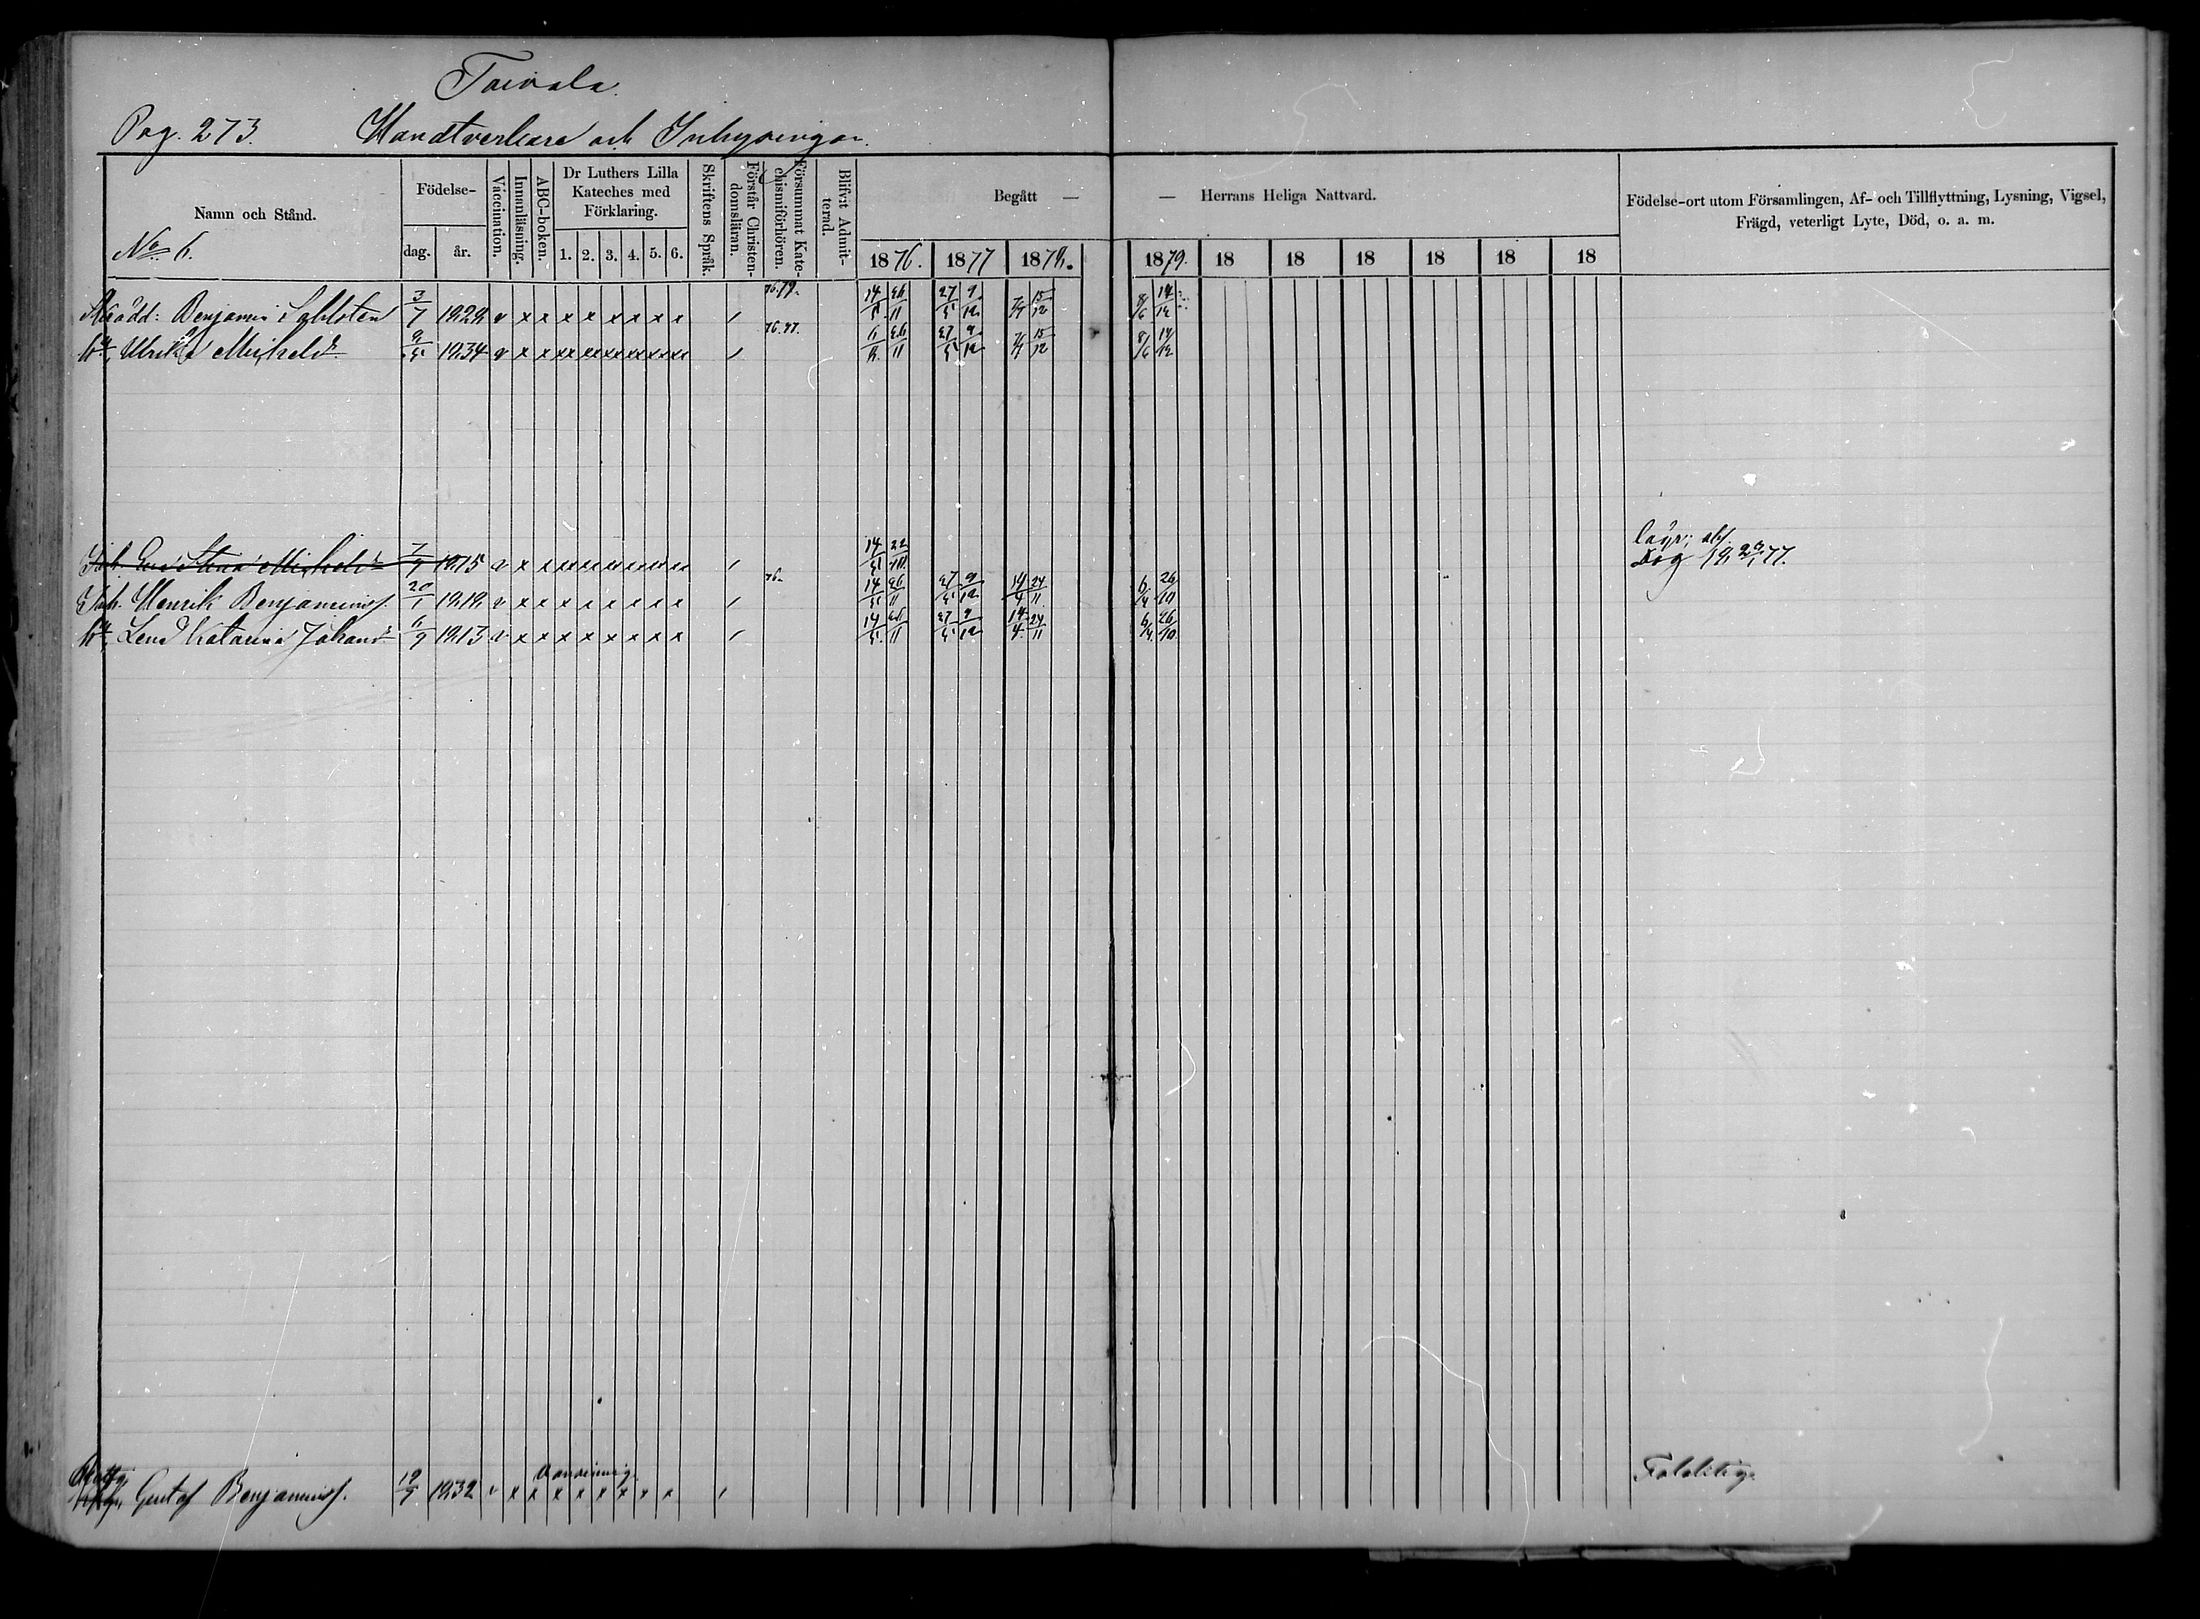 Toivala.
Pag. 273. Handtverkare och Inhysingar.
Namn och Stånd.
Födelse-
dag. år.
Vaccination.
Innanläsning.
ABC-boken.
Dr Luthers Lilla
Kateches med
Förklaring.
1. 2. 3. 4. 5. 6.
Skriftens Språk.
Förstår Christen-
domsläran.
Försummat Kate-
chismiförhören.
Blifvit Admit-
terad.
Begått — — Herrans Heliga Nattvard.
1876. 1877 1878. 1879. 18 18 18 18 18 18
Födelse-ort utom Församlingen, Af- och Tillflyttning, Lysning, Vigsel,
Frägd, veterligt Lyte, Död, o. a. m.
No 6.
Benjamin Sahlsten 3/7 1822 v x x x x x x x x 76.79. 27/5 9/12 15/12 8/6 14/12
Ulrika Mickelsdr 9/5 1834 v x x xx xx xx xx xx xx 76.77. 27/5 9/12 15/12 8/6 14/12
Eva Stina Mickelsdr 7/9 1815 v x x
Dog 18 77.
Inh. Henrik Benjaminss. 20/1 1812 v x x x x x x x x 76. 14/5 26/11 27/5 9/12 14/4 24/11 6/4 26/10
Lena Katarina Johansdr 6/9 1813 v x x x x x x x x 14/5 26/11 27/5 9/12 14/4 24/11 6/4 26/10
Gustaf Benjaminss. 19/7 1832 v x x x x x x x x